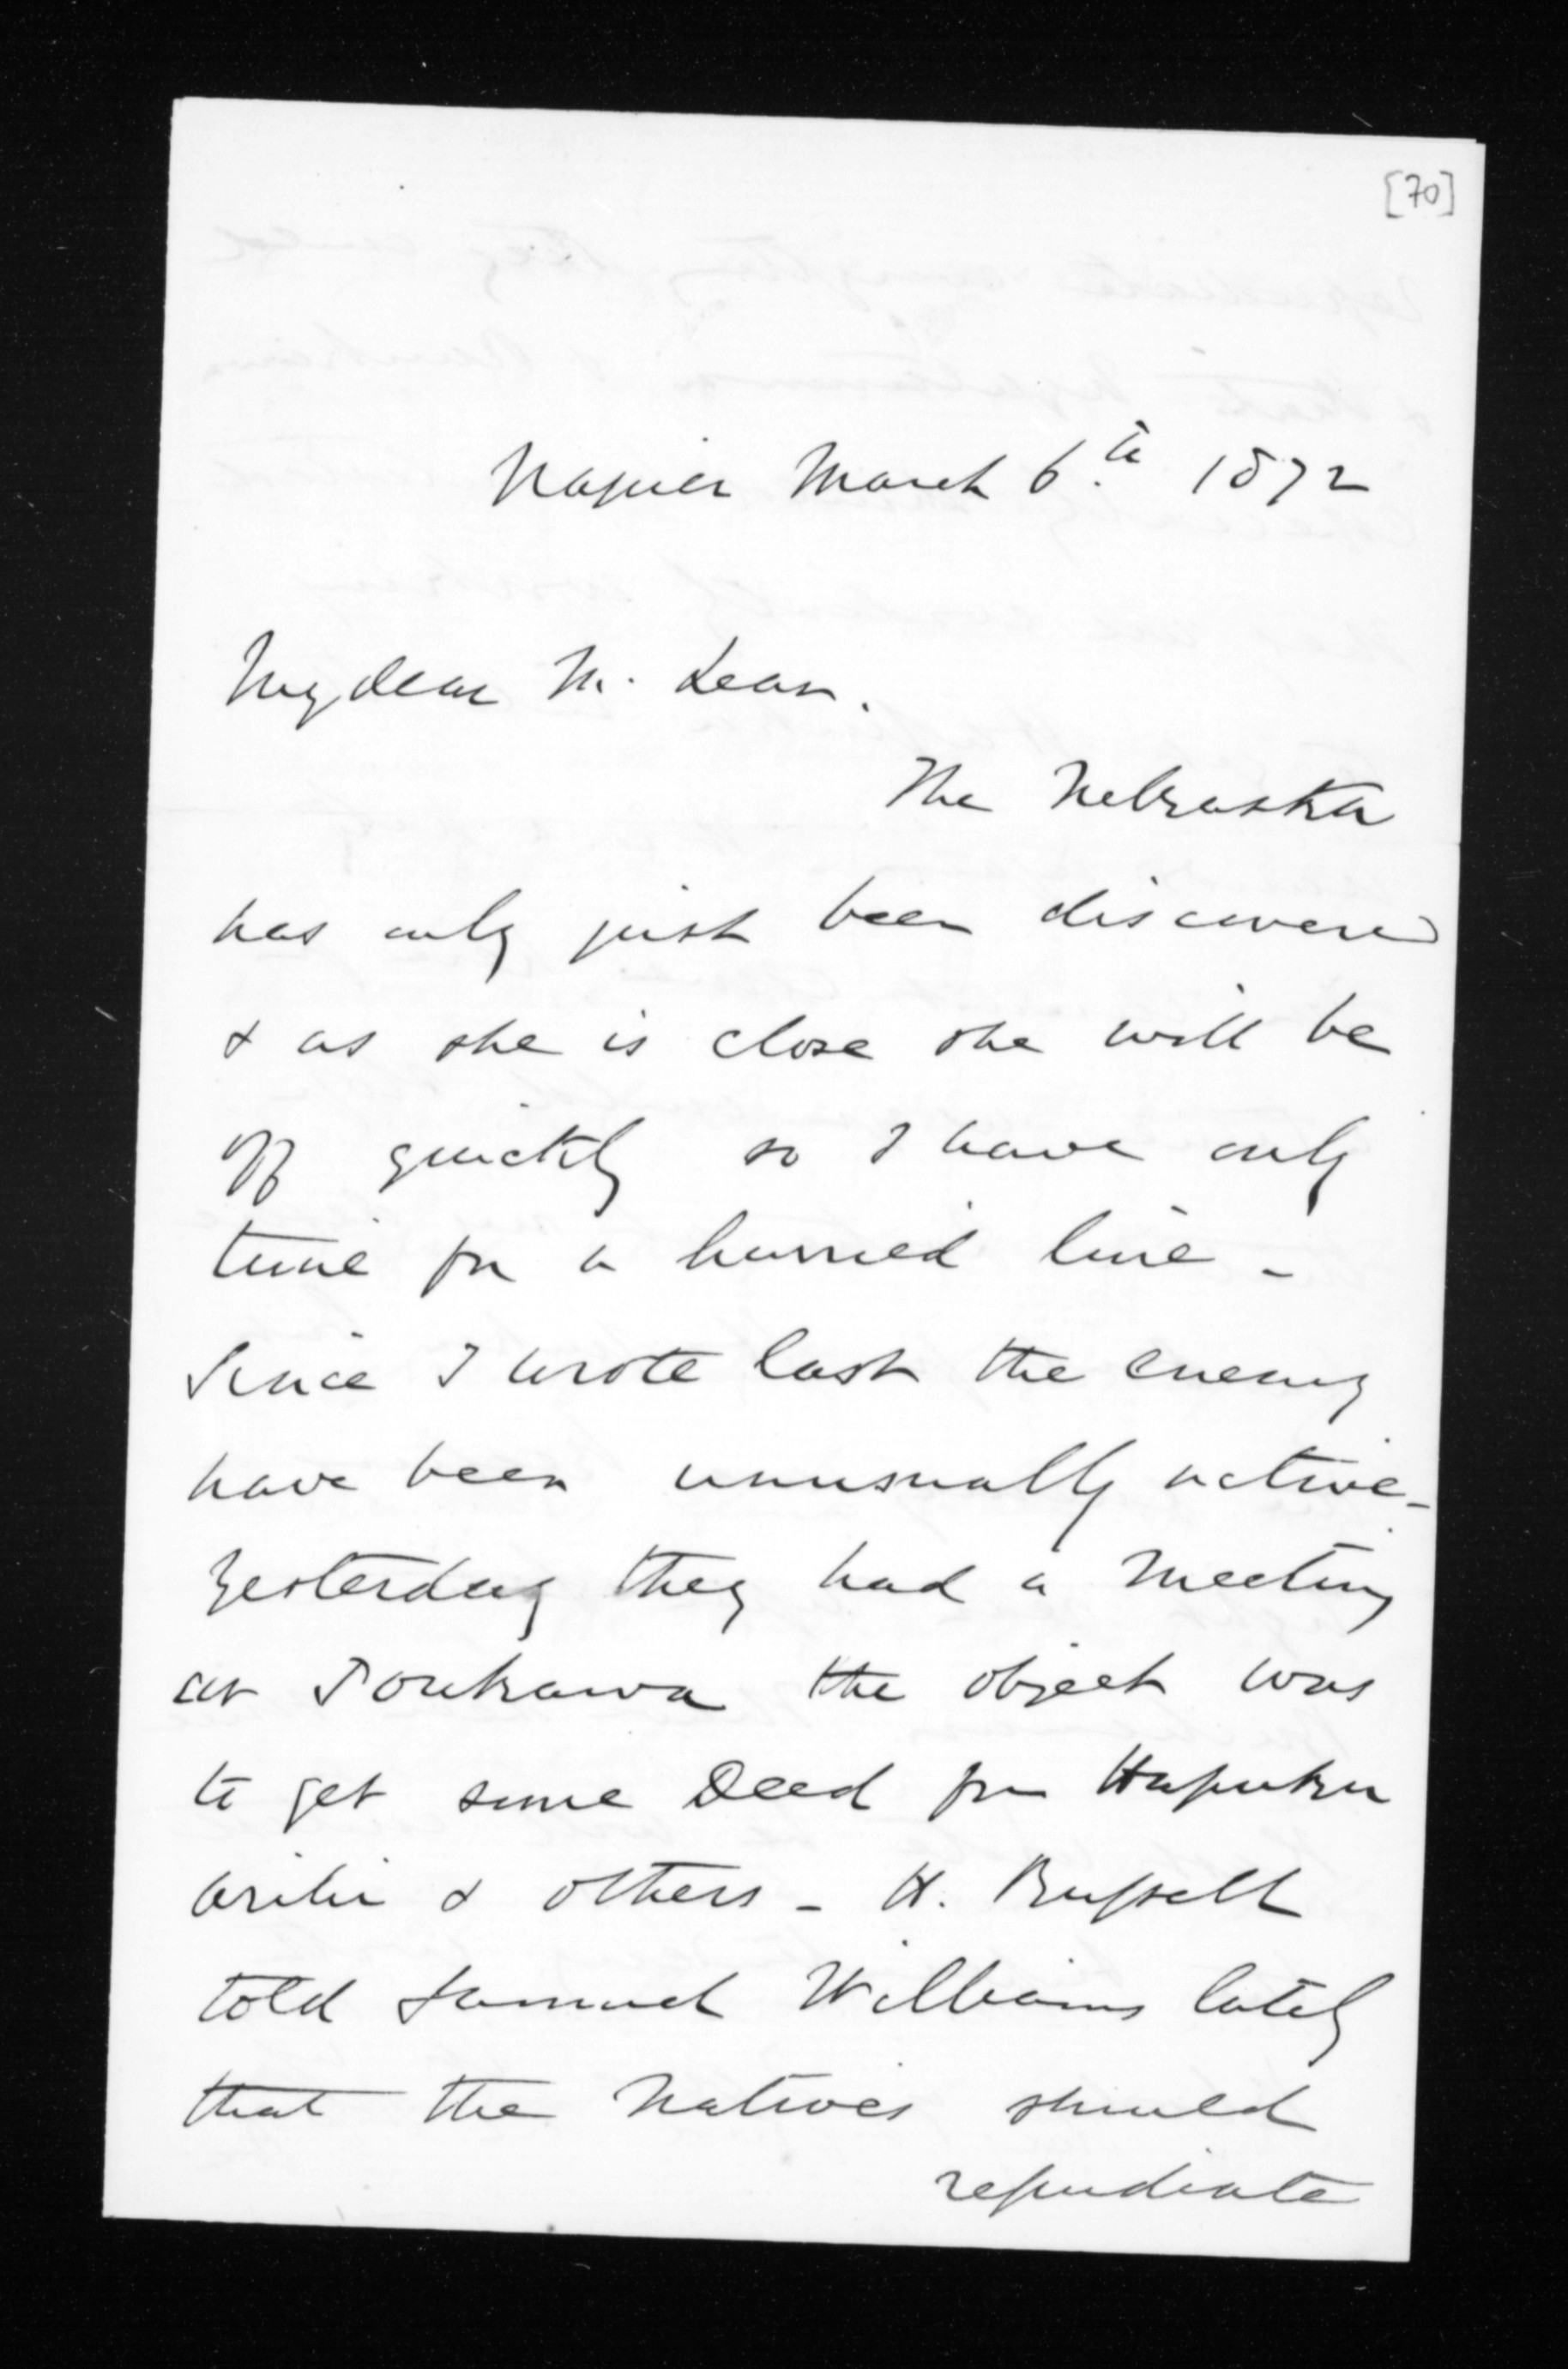 [70]
Napier March 6.th 1872
My dear McLean.
The Nebraska
has only just been discovered
& as she is close she will be
off quickly so I have only
time for a hurried line -
Since I wrote last the enemy
have been unusually active -
Yesterday they had a Meeting
at the object was
to get some Deed fm Hapuku
& others - H. Russell
told Samuel Williams lately
that the Natives should
repudiate